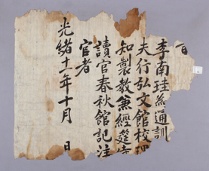 旨
李南珪為通訓
夫行弘文館校理
知製教兼經筵侍
讀官春秋館記注
官者
光緒十年十月　日